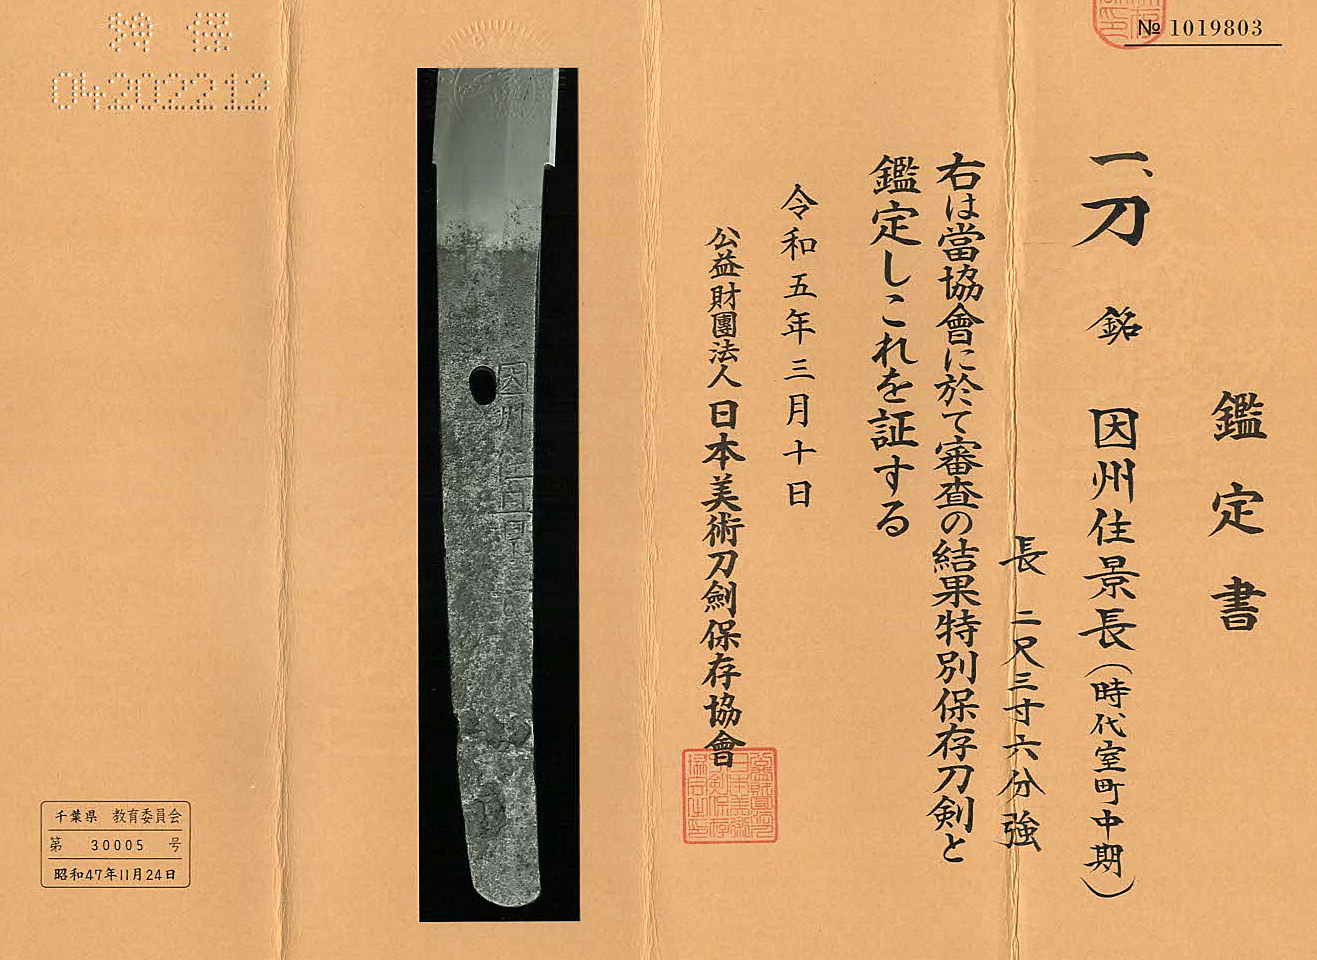 № 1019803
鑑定書
一、刀 銘 因州住景長(時代室町中期)
長 二尺三寸六分強
右は當協會に於て審査の結果特別保存刀剣と
鑑定しこれを証する
令和五年三月十日
公益財團法人 日本美術刀劍保存協會
因州住
特保
04202212
千葉県 教育委員会
第 30005 号
昭和47年11月24日